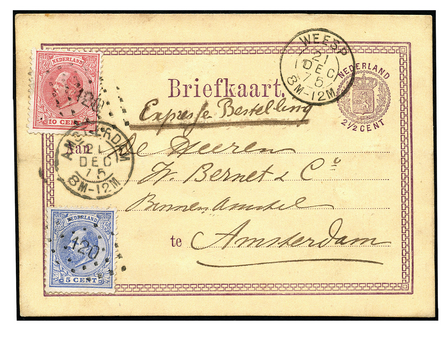 WEESP
21
DEC
75
8M-12M
NEDERLAND
2½ CENT
NEDERLAND
10 CENT
Briefkaart.
Expresse Bestelling
Aan
AMSTERDAM
21
DEC
75
8M-12M
De Heeren
W. Bernet & Co
Binnen Amstel
te Amsterdam
NEDERLAND
120
5 CENT